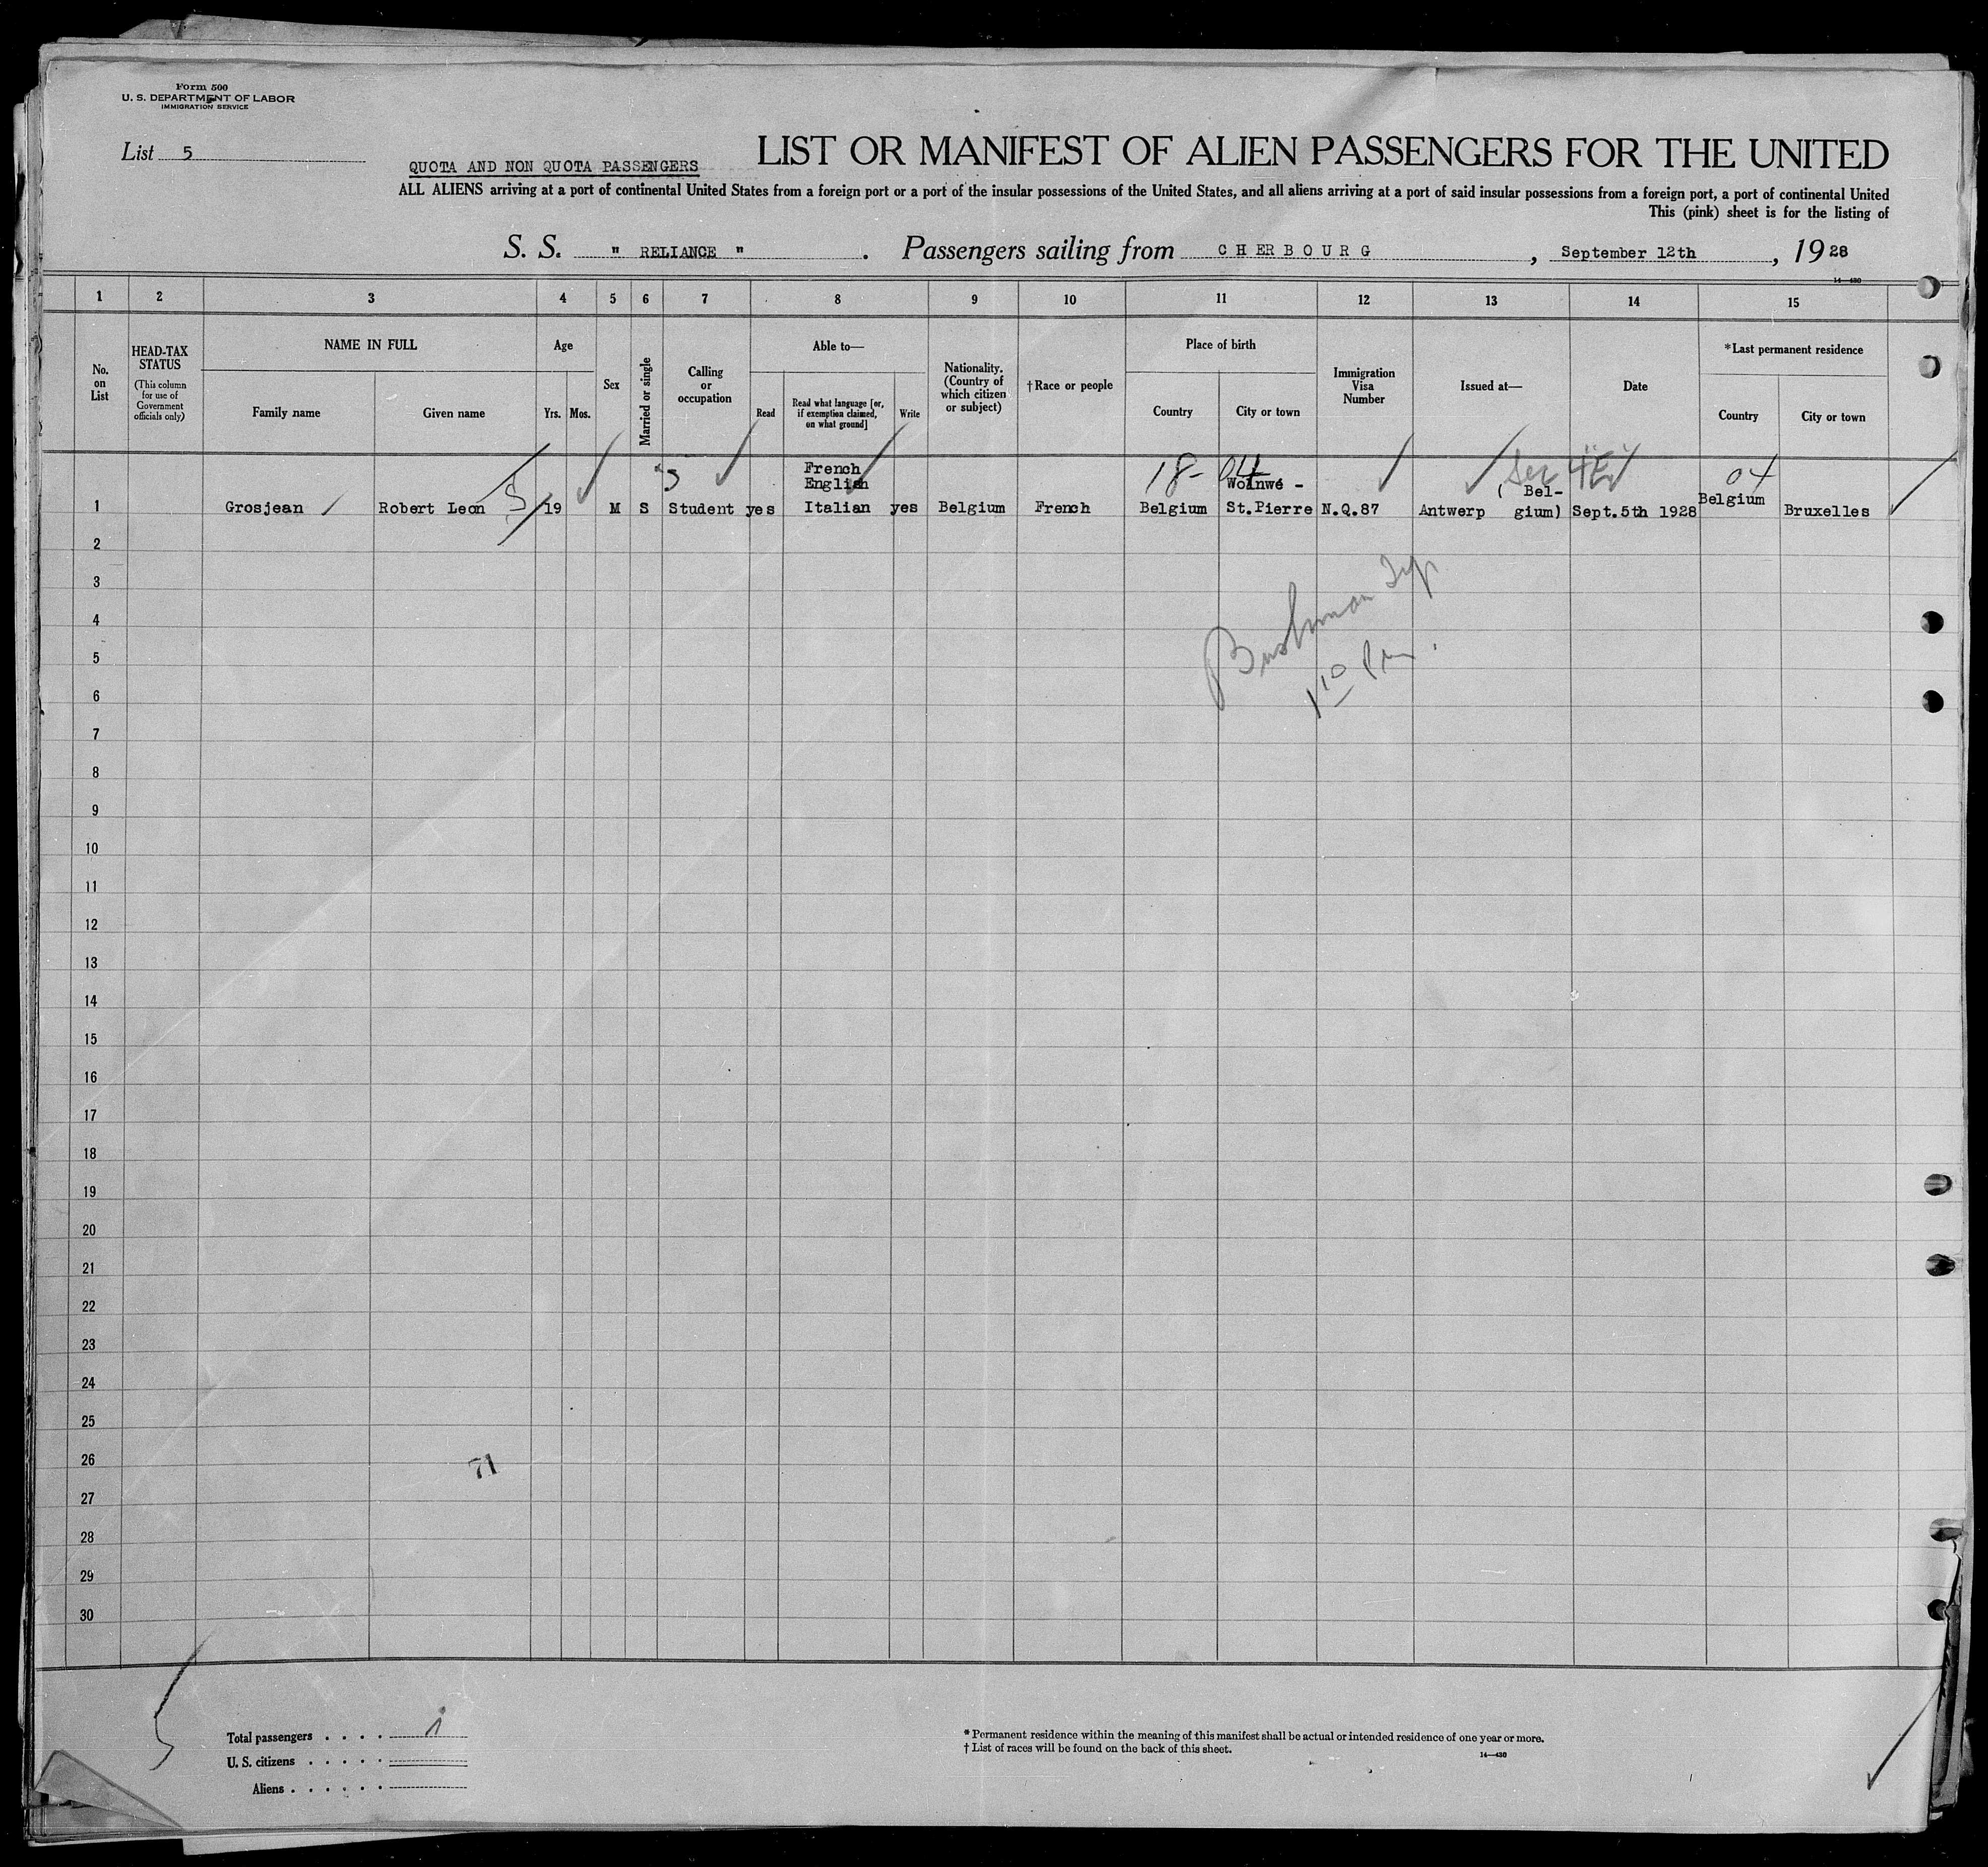 Form 500
U. S. DEPARTMENT OF LABOR
IMMIGRATION SERVICE
List 5
QUOTA AND NON QUOTA PASSENGERS
LIST OR MANIFEST OF ALIEN PASSENGERS FOR THE UNITED
ALL ALIENS arriving at a port of continental United States from a foreign port or a port of the insular possessions of the United States, and all aliens arriving at a port of said insular possessions from a foreign port, a port of continental United
This (pink) sheet is for the listing of
S. S. " RELIANCE " . Passengers sailing from CHERBOURG , September 12th , 1928
14—430
1 2 3 4 5 6 7 8 9 10 11 12 13 14 15
No. on List
HEAD-TAX STATUS (This column for use of Government officials only)
NAME IN FULL
Family name Given name
Age
Yrs. Mos.
Sex
Married or single
Calling or occupation
Able to—
Read
Read what language [or, if exemption claimed, on what ground]
Write
Nationality. (Country of which citizen or subject)
†Race or people
Place of birth
Country City or town
Immigration Visa Number
Issued at—
Date
*Last permanent residence
Country City or town
18- 04 Sec 4E 04
1 Grosjean Robert Leon S 19 M S Student yes French English Italian yes Belgium French Belgium Wolnwé - St.Pierre N.Q.87 Antwerp ( Bel- gium) Sept.5th 1928 Belgium Bruxelles
2
3
4
5
6
7
8
9
10
11
12
13
14
15
16
17
18
19
20
21
22
23
24
25
26
71
27
28
29
30
Total passengers . . . . 1
U. S. citizens . . . . .
Aliens . . . . . .
* Permanent residence within the meaning of this manifest shall be actual or intended residence of one year or more.
† List of races will be found on the back of this sheet.
14—430